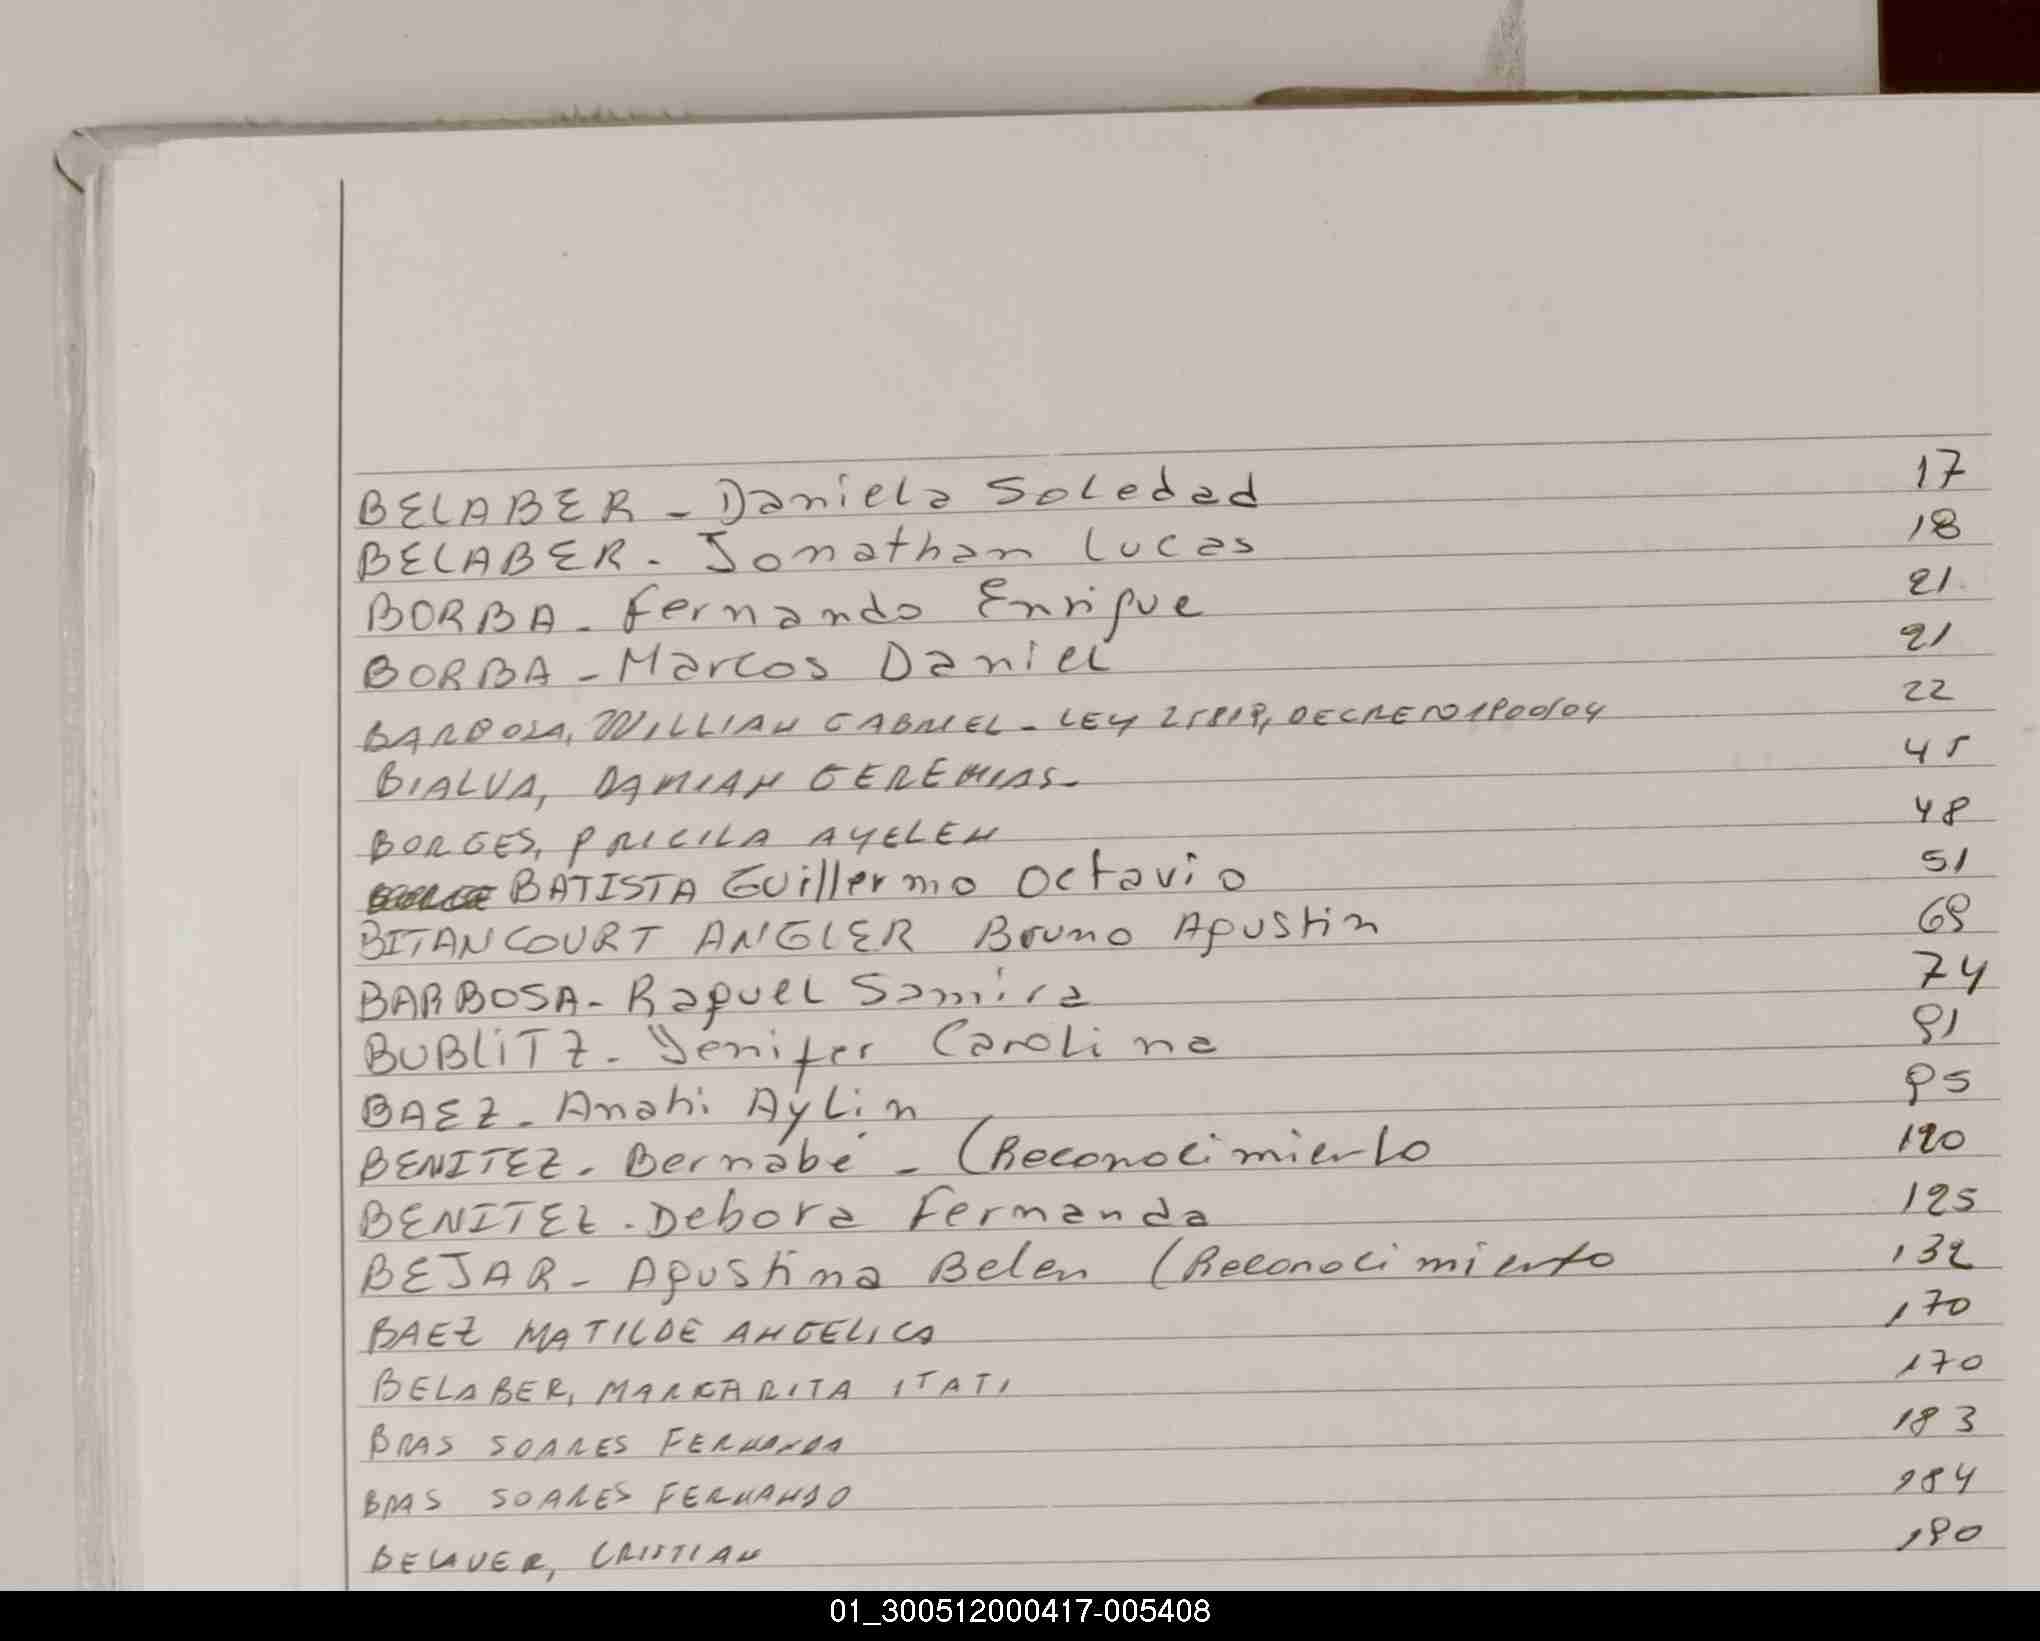 BELABER - Daniela Soledad 17
BELABER - Jonathan Lucas 18
BORBA - Fernando Enrique 21
BORBA - Marcos Daniel 21
BARBOSA, WILLIAN GABRIEL - LEY 25819, DECRETO 1800/04 22
BIALVA, DAMIAN GEREMIAS - 45
BORGES, PRICILA AYELEN 48
BATISTA Guillermo Octavio 51
BITANCOURT ANGLER Bruno Agustin 69
BARBOSA - Raquel Samira 74
BUBLITZ - Yenifer Carolina 91
BAEZ - Anahi Aylin 95
BENITEZ - Bernabé - (Reconocimiento 120
BENITEZ - Debora Fernanda 125
BEJAR - Agustina Belen (Reconocimiento 132
BAEZ MATILDE ANGELICA 170
BELABER, MARGARITA ITATI 170
BRAS SOARES FERNANDA 183
BRAS SOARES FERNANDO 184
BELAVER, CRISTIAN 190
01_300512000417-005408